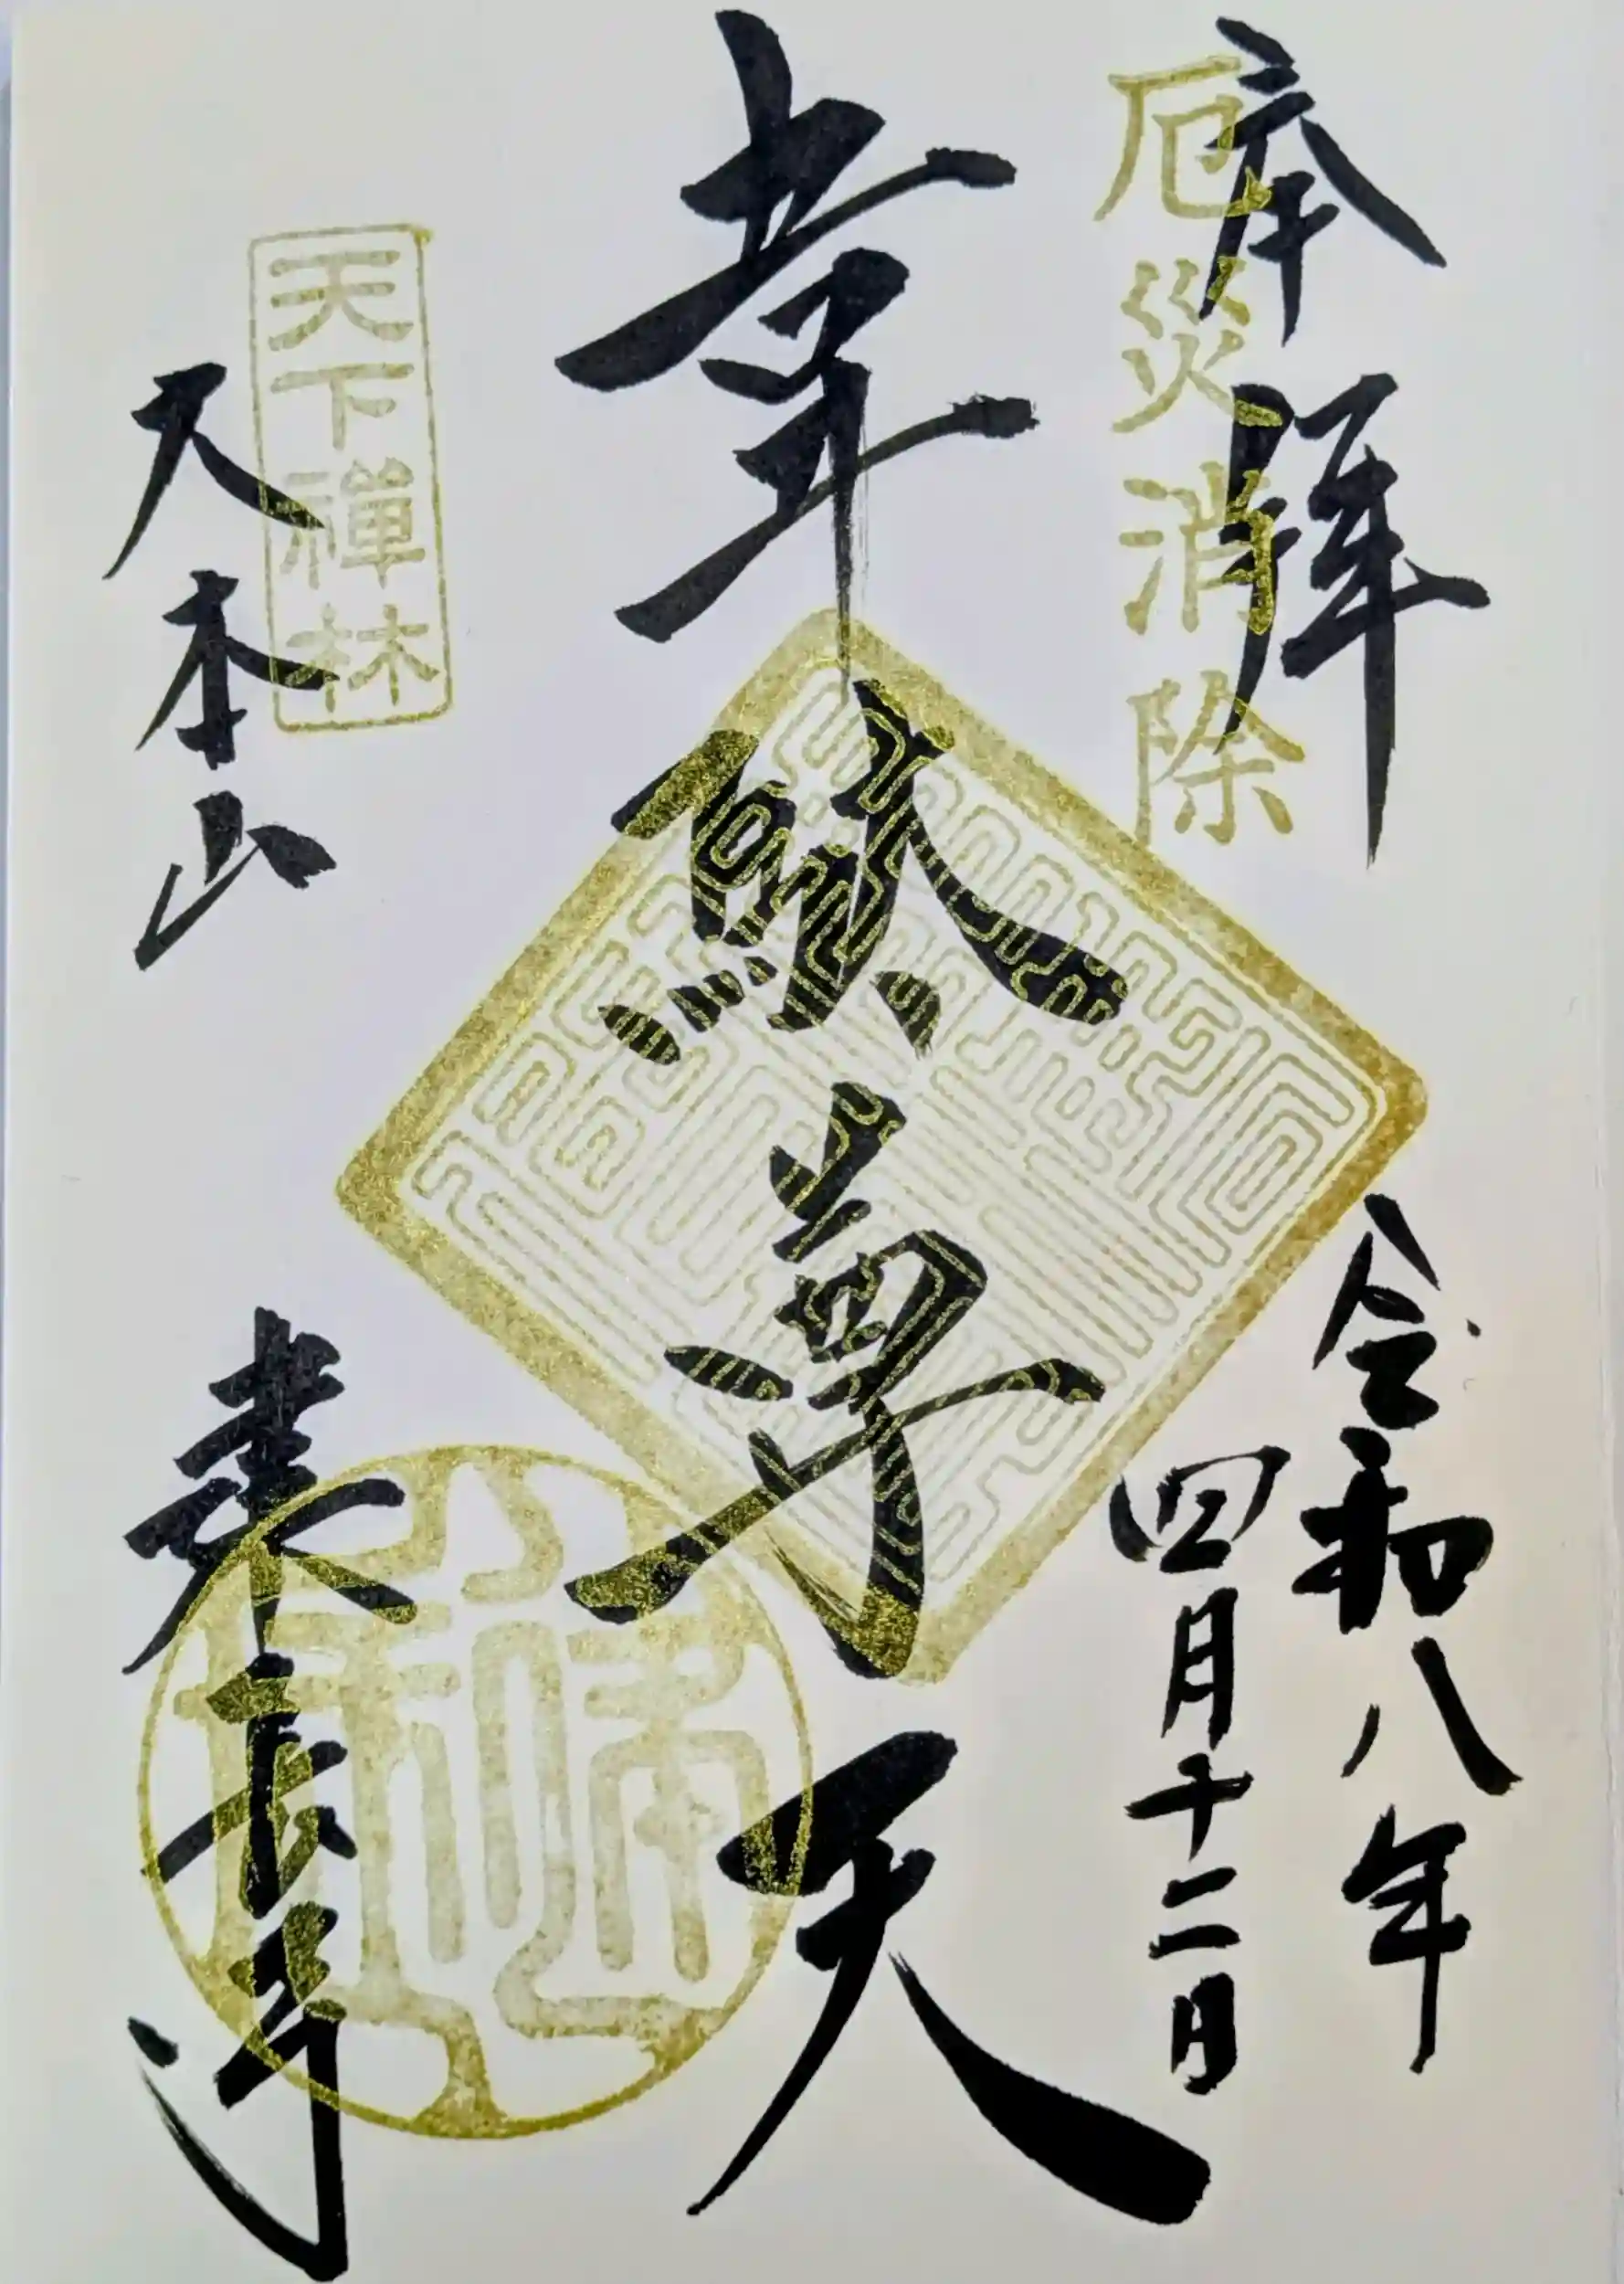 奉拝
厄災消除
令和八年
四月十二日
韋駄尊天
天下禪林
大本山
建長寺